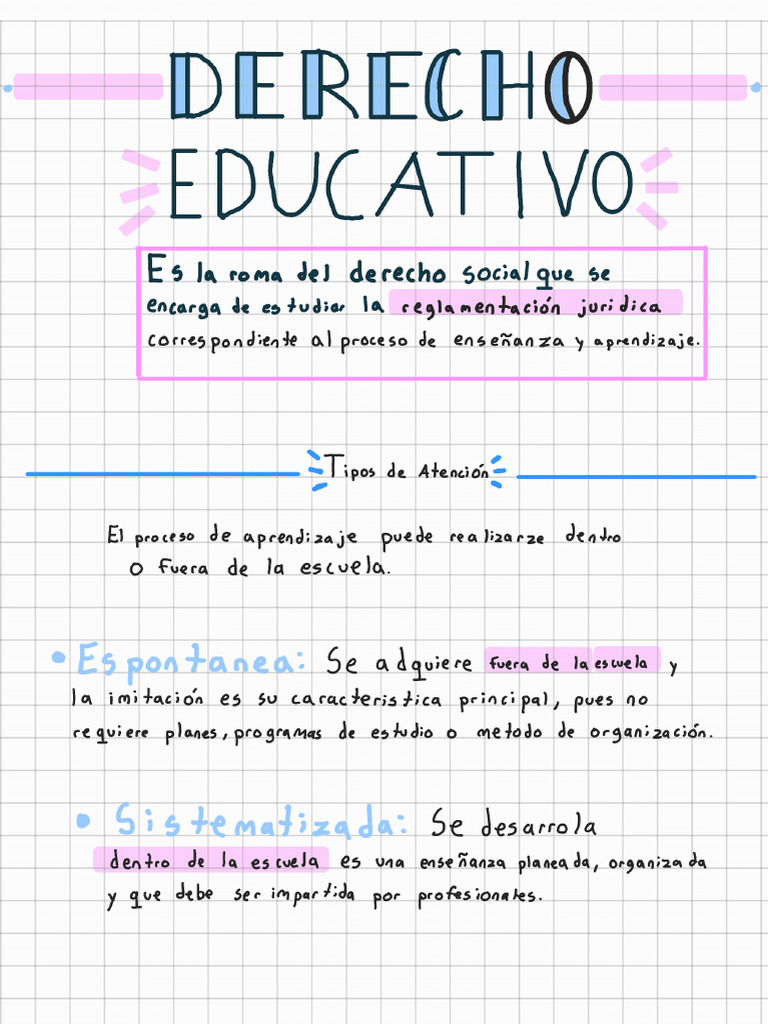 DERECHO
EDUCATIVO
Es la roma del derecho social que se
encarga de estudiar la reglamentación juridica
correspondiente al proceso de enseñanza y aprendizaje.
Tipos de Atención
El proceso de aprendizaje puede realizarze dentro
o fuera de la escuela.
• Espontanea: Se adquiere fuera de la escuela y
la imitación es su caracteristica principal, pues no
requiere planes, programas de estudio o metodo de organización.
• Sistematizada: Se desarrola
dentro de la escuela es una enseñanza planeada, organizada
y que debe ser impartida por profesionales.